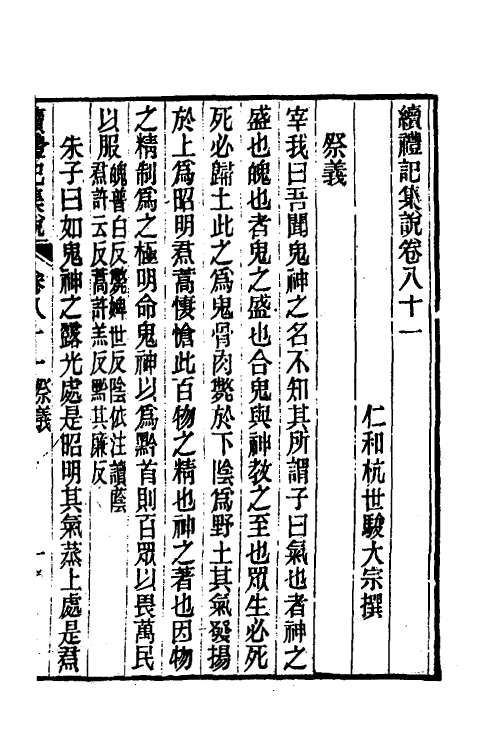 續禮記集說卷八十一
仁和杭世駿大宗撰
祭義
宰我曰吾聞鬼神之名不知其所謂子曰氣也者神之
盛也魄也者鬼之盛也合鬼與神教之至也眾生必死
死必歸土此之爲鬼骨肉斃於下陰爲野土其氣發揚
於上爲昭明焄蒿悽愴此百物之精也神之著也因物
之精制爲之極明命鬼神以爲黔首則百眾以畏萬民
以服
魄普白反斃婢世反陰依注讀蔭
焄許云反蒿許羔反黔其廉反
朱子曰如鬼神之露光處是昭明其氣蒸上處是焄
續禮記集說 卷八十一 祭義 一